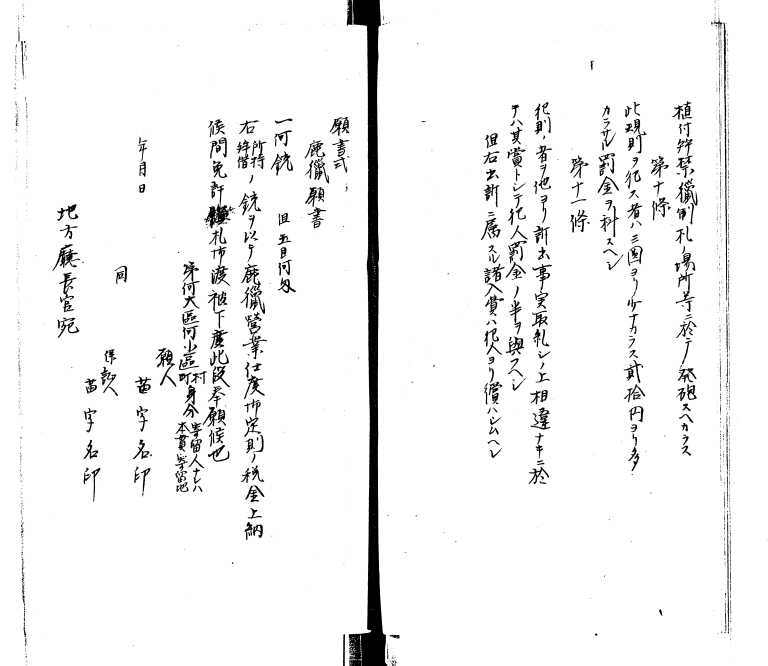 植付幷禁獵制札ノ場所等ニ於テ発砲スヘカラス
第十條
此規則ヲ犯ス者ハ三圓ヨリ少ナカラス貳拾円ヨリ多
カラサル罰金ヲ科スヘシ
第十一條
犯則ノ者ヲ他ヨリ訴出事実取糺シノ上相違ナキニ於
テハ其賞トシテ犯人罰金ノ半ヲ與フヘシ
但右出訴ニ属スル諸入費ハ犯人ヨリ償ハシムヘシ
願書式
鹿獵願書
一何銃 但玉目何匁
右所持拝借ノ銃ヲ以テ鹿獵營業仕度御定則ノ税金上納
候間免許札御渡被下度此段奉願候也
第何大區何小區村町身分寄留人ナレハ本貫寄留地
願人 苗字名印
年月日
同 保証人 苗字名印
地方廳長官宛